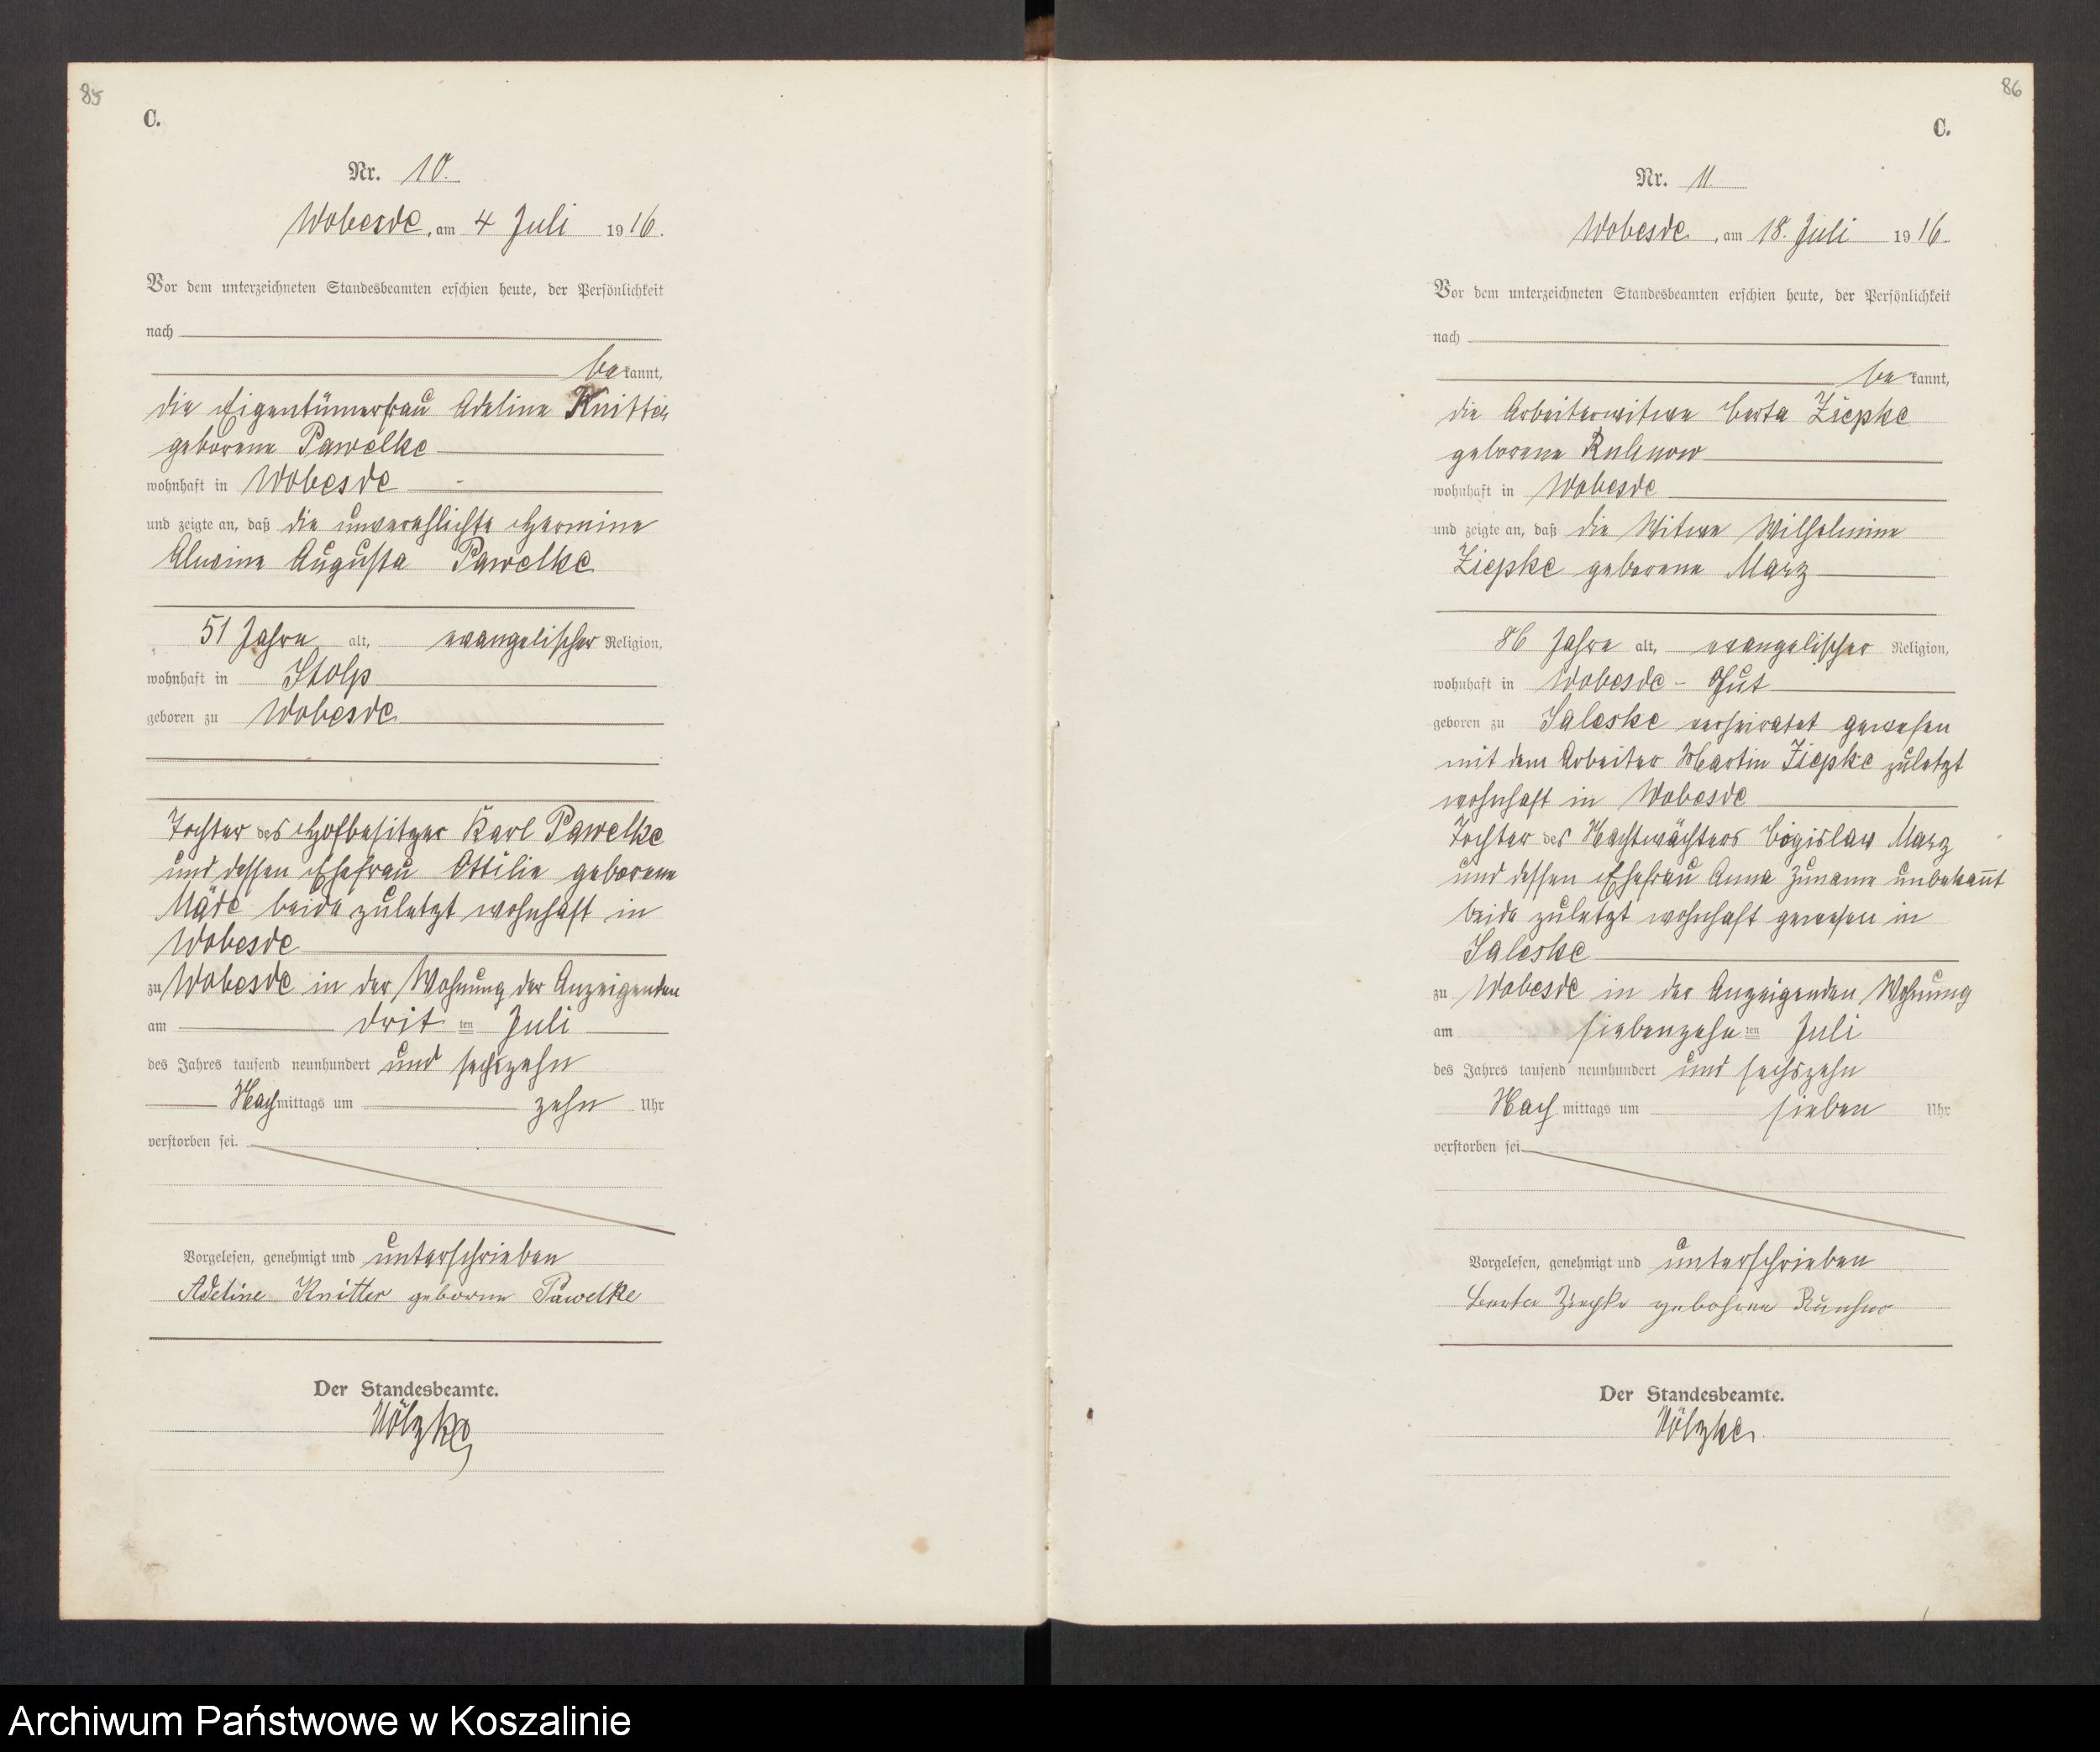 85
C.
Nr. 10.
Wobesde, am 4 Juli 1916.
Vor dem unterzeichneten Standesbeamten erschien heute, der Persönlichkeit
nach
bekannt,
die Eigentümerfrau Adeline Knitter
geborene Pawelke
wohnhaft in Wobesde
und zeigte an, daß die unverehlichte Hermine
Alwine Augusta Pawelke
51 Jahre alt, evangelischer Religion,
wohnhaft in Stolp
geboren zu Wobesde
Tochter des Hofbesitzer Karl Pawelke
und dessen Ehefrau Ottilie geborene
Mäde beide zuletzt wohnhaft in
Wobesde
zu Wobesde in der Wohnung der Anzeigenden
am drit ten Juli
des Jahres tausend neunhundert und sechszehn
Nachmittags um zehn Uhr
verstorben sei.
Vorgelesen, genehmigt und unterschrieben
Adeline Knitter geborne Pawelke
Der Standesbeamte.
Völzke
86
C.
Nr. 11.
Wobesde, am 18. Juli 1916.
Vor dem unterzeichneten Standesbeamten erschien heute, der Persönlichkeit
nach
bekannt,
die Arbeiterwitwe Berta Ziepke
geborene Ruhnow
wohnhaft in Wobesde
und zeigte an, daß die Witwe Wilhelmine
Ziepke geborene Marz
86 Jahre alt, evangelischer Religion,
wohnhaft in Wobesde - Gut
geboren zu Saleske verheiratet gewesen
mit dem Arbeiter Martin Ziepke zuletzt
wohnhaft in Wobesde
Tochter des Nachtwächters Bogislav Marz
und dessen Ehefrau Anna Zuname unbekannt
beide zuletzt wohnhaft gewesen in
Saleske
zu Wobesde in der Anzeigenden Wohnung
am siebenzehn ten Juli
des Jahres tausend neunhundert und sechszehn
Nach mittags um sieben Uhr
verstorben sei
Vorgelesen, genehmigt und unterschrieben
Berta Ziepke gebohrene
Der Standesbeamte.
Völzke.
Archiwum Państwowe w Koszalinie